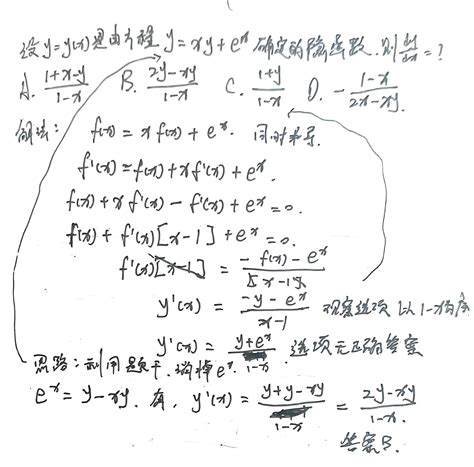 设y=y(x)是由方程 y=xy+e^x 确定的隐函数,则dy/dx=?
A. (1+x-y)/(1-x) B. (2y-xy)/(1-x) C. (1+y)/(1-x) D. -(1-x)/(2x-xy)
解法: f(x)=xf(x)+e^x. 同时求导.
f'(x)=f(x)+xf'(x)+e^x.
f(x)+xf'(x)-f'(x)+e^x=0.
f(x)+f'(x)[x-1]+e^x=0.
f'(x)[x-1]=(-f(x)-e^x)/[x-1]
y'(x)=(-y-e^x)/(x-1) 观察选项以1-x为
y'(x)=(y+e^x)/(1-x) 选项无正确答案
思路:利用题干,消掉e^x.
e^x=y-xy.有,y'(x)=(y+y-xy)/(1-x)=(2y-xy)/(1-x).
答案B.